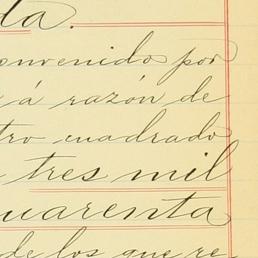 da.
onvenido por
á razón de
tro cuadrado
tres mil
uarenta
de los que re